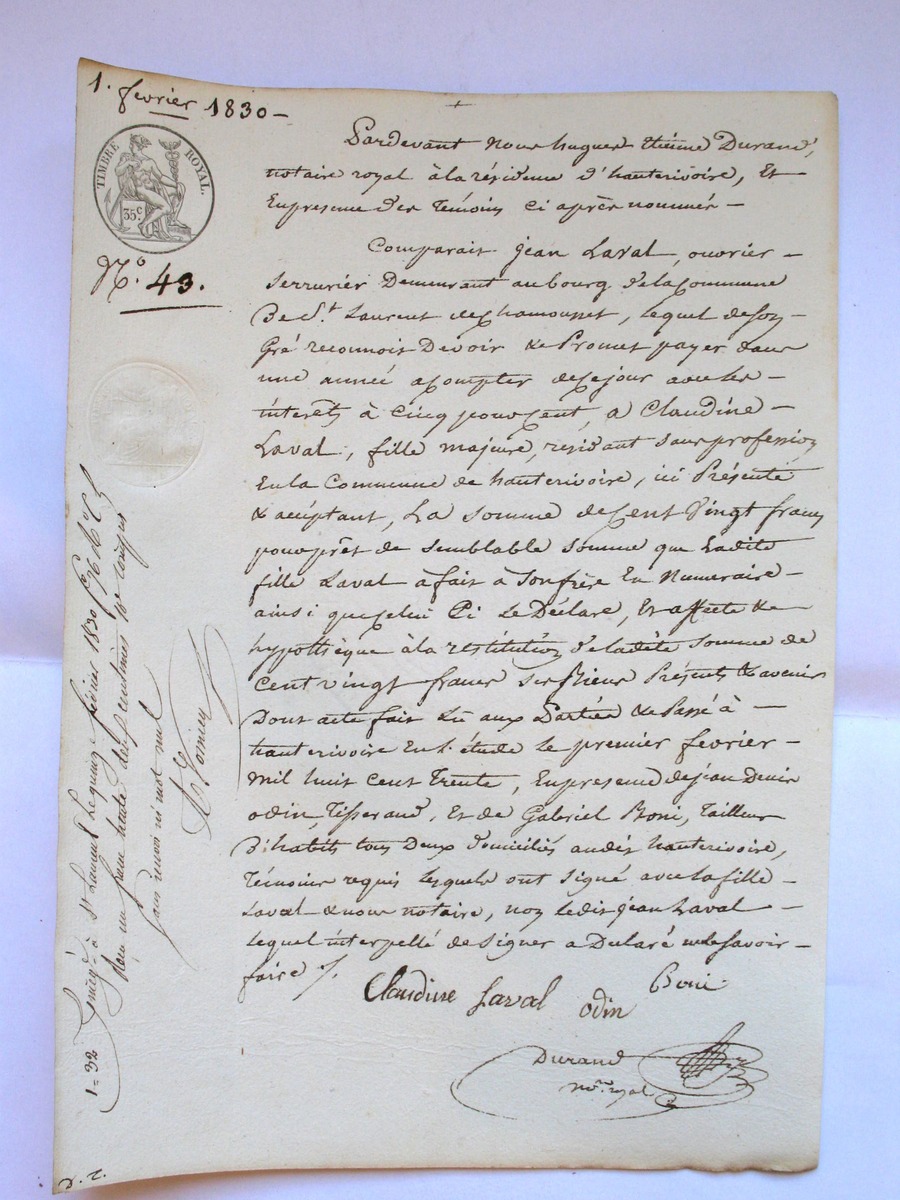 1. fevrier 1830 –
TIMBRE ROYAL.
35c
N.o 43.
Pardevant Nous hugues Etienne Durand,
notaire royal à la résidence d'hauterivoire, Et
En presence des Témoins ci après nommés –
Comparait jean Laval, ouvrier –
Serrurier Demeurant au bourg de la Commune
De St. Laurent de Chamousset, lequel de son
Gré reconnoit Devoir & Promet payer dans
une année a compter de ce jour avec les –
intérêts à Cinq pour Cent, a Claudine –
Laval, fille majeure, residant sans profession
En la Commune de hauterivoire, ici Présente
& acceptant, La somme de Cent Vingt francs
pour prêt de semblable somme que Ladite
fille Laval à fait à Son frère En Numeraire –
ainsi que Celui Ci Le Déclare, Et affecte &
hypothèque à la restitution de ladite somme de
Cent vingt francs ses Biens Présents & avenir
Dont acte fait Lu aux Parties & Passé à –
hauterivoire En l'étude le premier fevrier –
Mil huit Cent Trente, En presence de jean Denis
odin, Tisserand, Et de Gabriel Boni, Tailleur
D'habits tous Deux Domiciliés audit hauterivoire,
Témoins requis lesquels ont signé avec la fille –
Laval & nous notaire, non ledit jean Laval –
lequel interpellé de Signer a Déclaré ne le Savoir –
faire /.
Claudine Laval
odin
Boni
Durand
not.re royal
Enreg.é à St Laurent Le quinze février 1830
Reçu un franc trente deux centimes 10e compris
sans renvoi ni mot nul
1=32